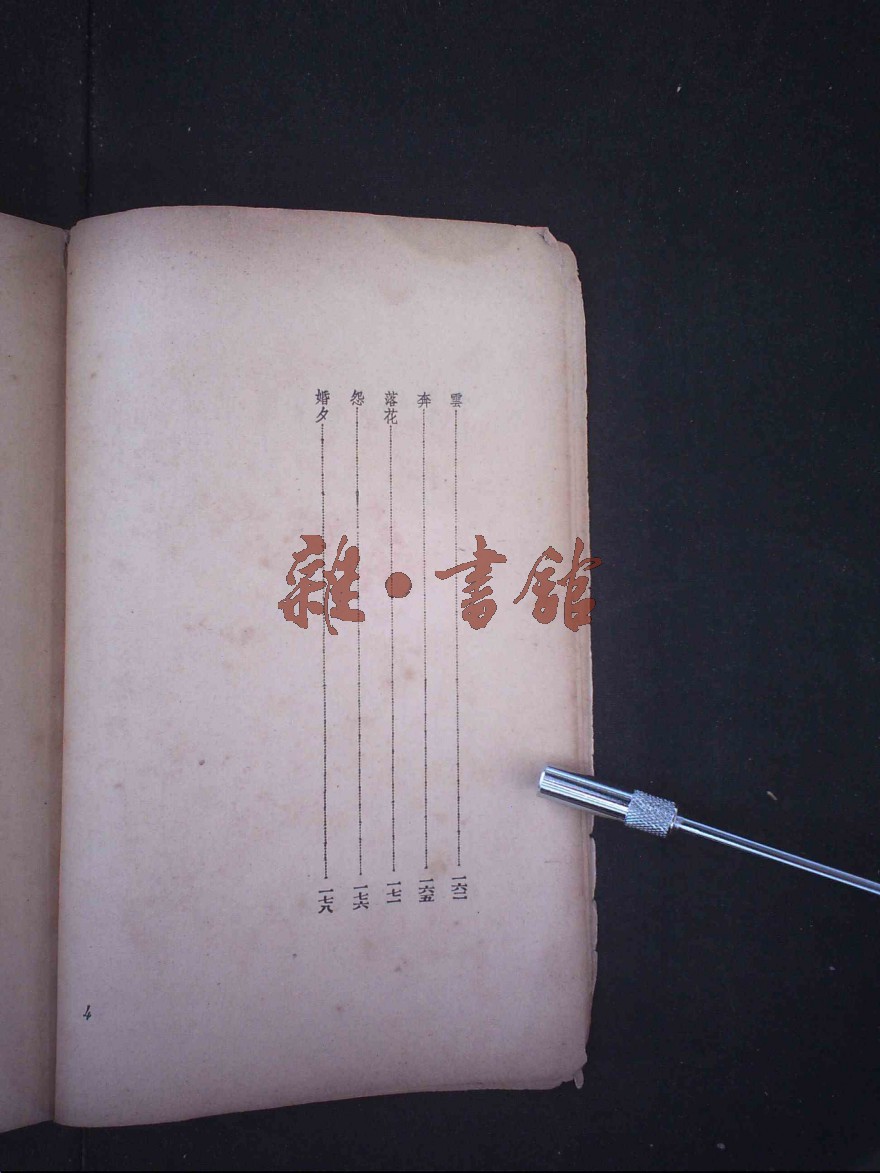 雲一六二
奔一六五
落花一七一
怨一七六
婚夕一七八
4
雜·書館